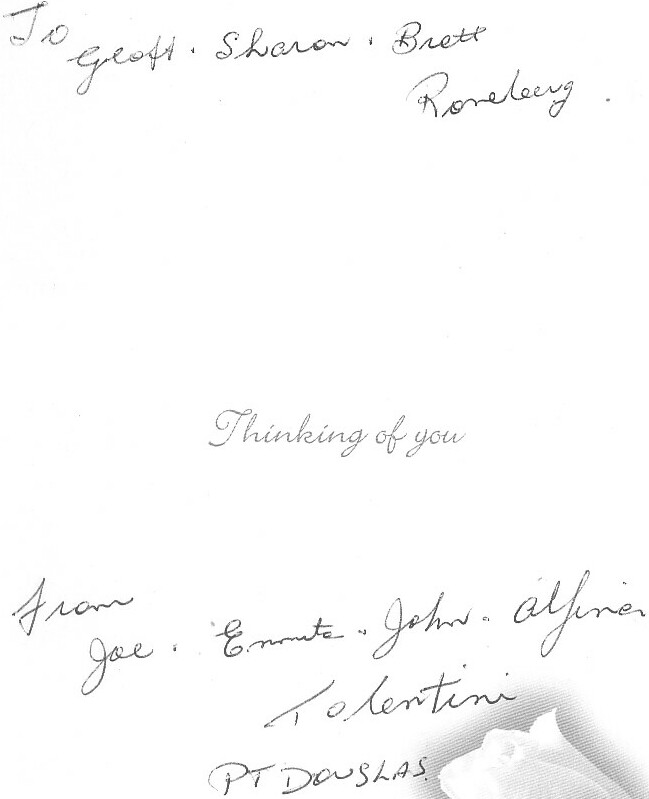 To
Geoff. Sharon. Brett
Roneberg.
Thinking of you
From
Joe. John. Alfina
Tolentini
PT DOUGLAS.